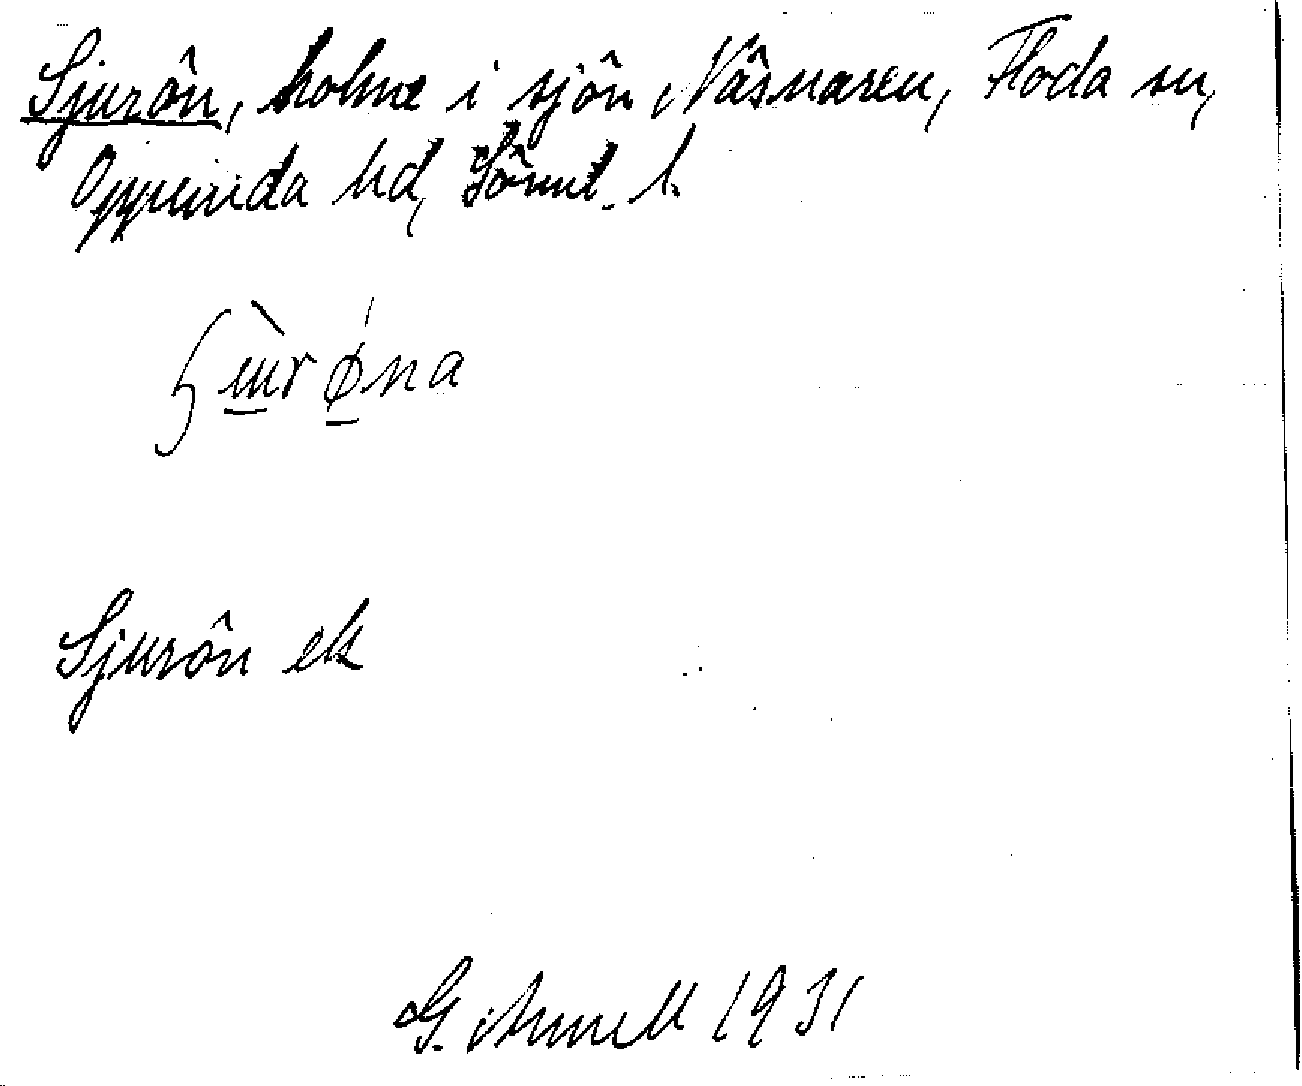 Sjurön, holme i sjön Näsnaren, Floda sn,
Oppunda hd, Söml. l.
Sjurön ek
G. Arnell 1931